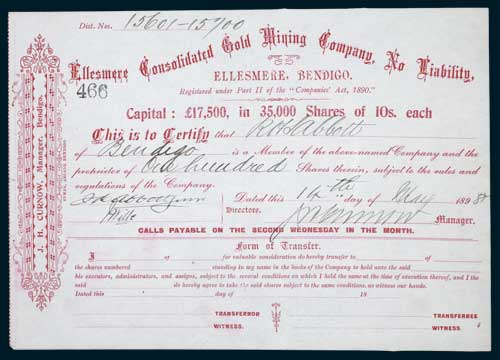 Dist. Nos. 15601-15700
Ellesmere Consolidated Gold Mining Company, No Liability,
ELLESMERE, BENDIGO.
466
Registered under Part II of the "Companies' Act, 1890."
Capital: £17,500, in 35,000 Shares of 10s. each
This is to Certify that R H Abbott
of Bendigo is a Member of the above-named Company and the
proprietor of One hundred Shares therein, subject to the rules and
regulations of the Company.
Dated this 14th day of May 1898
Directors.
Manager.
CALLS PAYABLE ON THE SECOND WEDNESDAY IN THE MONTH.
Form of Transfer.
I of for valuable consideration do hereby transfer to of
the shares numbered standing in my name in the books of the Company to hold unto the said
his executors, administrators, and assigns, subject to the several conditions on which I held the same at the time of execution thereof, and I the
said do hereby agree to take the said shares subject to the same conditions, as witness our hands.
Dated this day of 18
TRANSFEROR TRANSFEREE
WITNESS. WITNESS.
H. CURNOW, Manager, Bendigo.